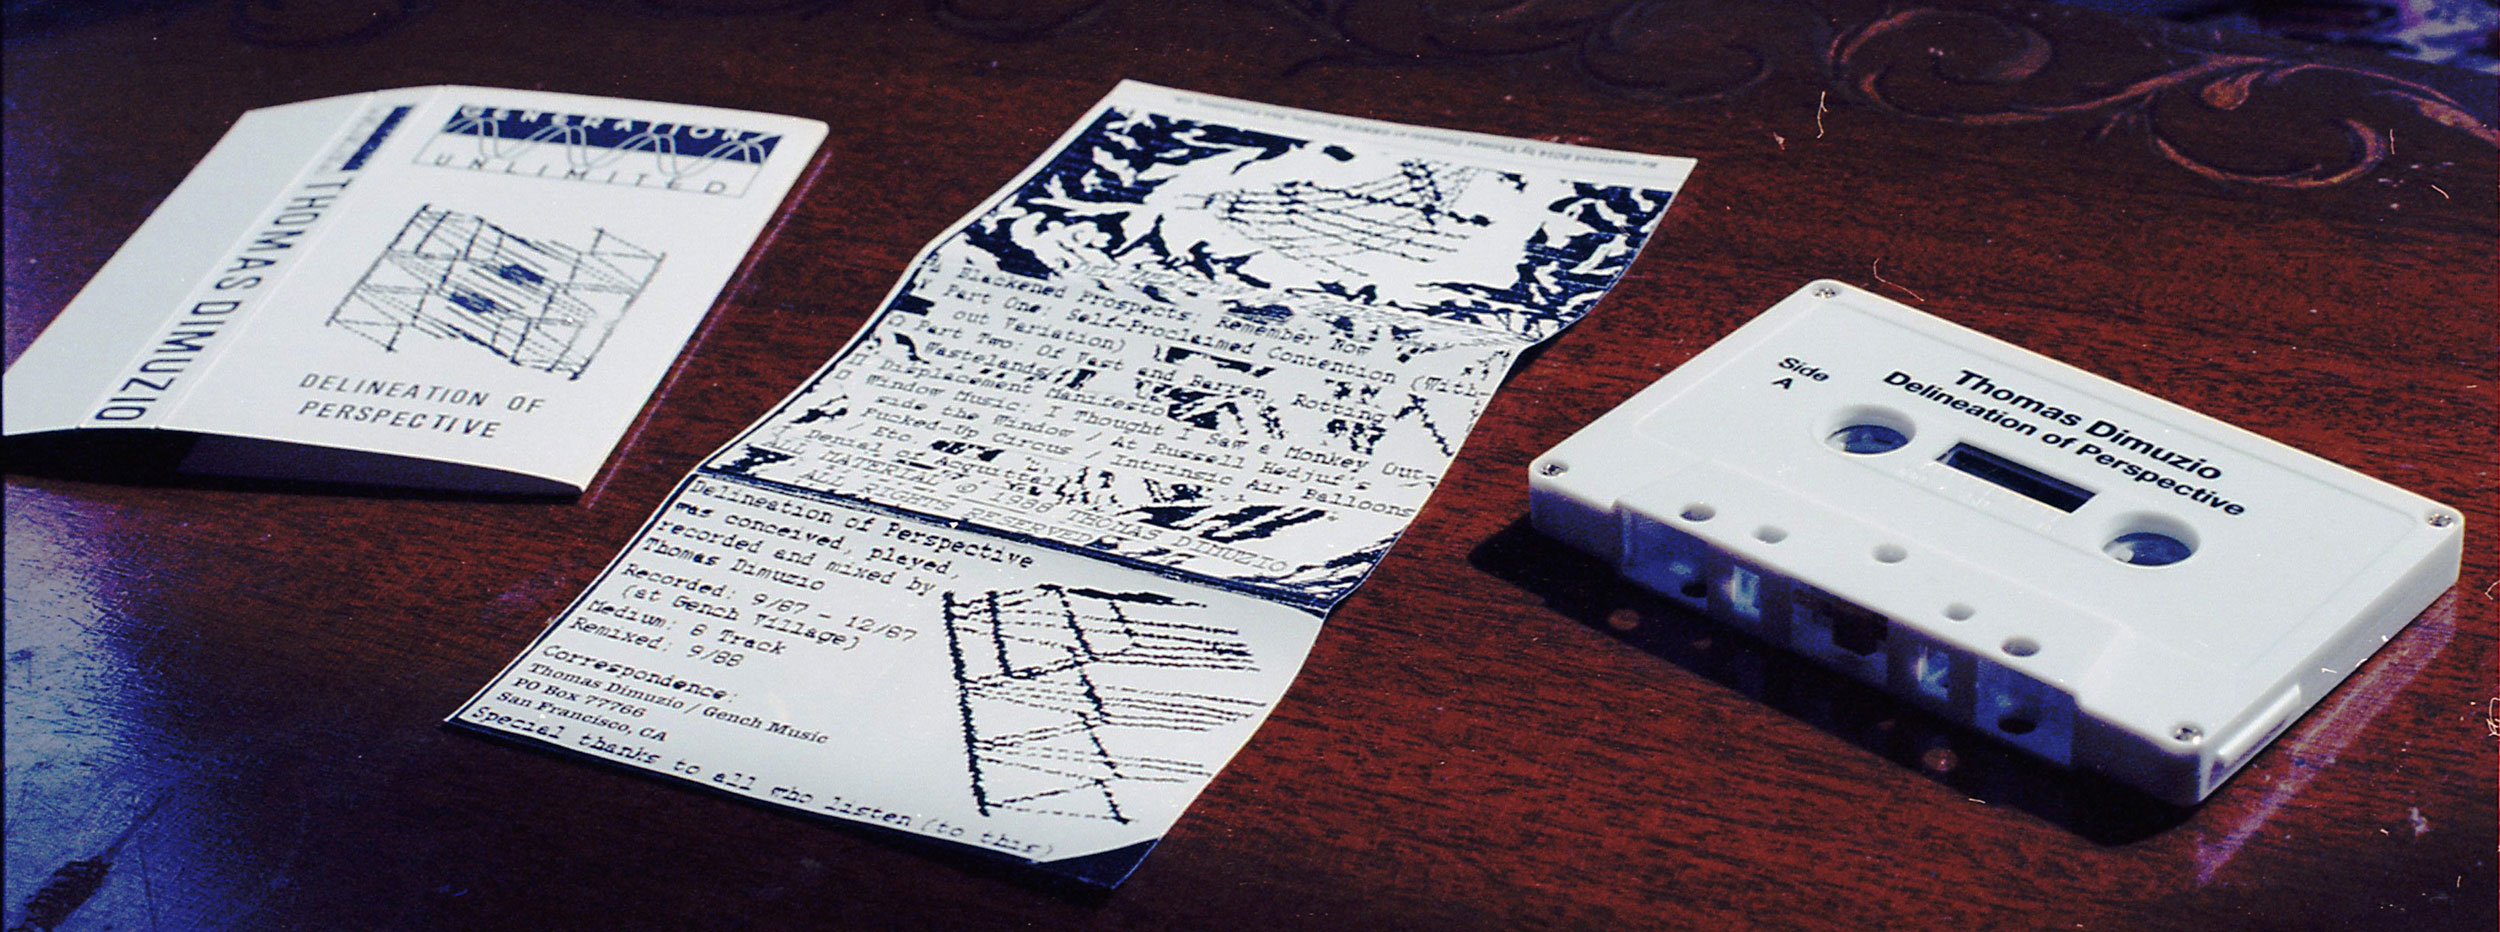 GENERATION
UNLIMITED
THOMAS DIMUZIO
DELINEATION OF
PERSPECTIVE
Re-mastered 2014 by Thomas Dimuzio
Blackened Prospects: Remember Now
Part One: Self-Proclaimed Contention (With-
out Variation)
Part Two: Of Vast and Barren, Rotting
Wastelands/
Displacement Manifesto
Window Music: I Thought I Saw a Monkey Out-
side the Window / At Russell Hedjuf's
Fucked-Up Circus / Intrinsic Air Balloons
/ Etc.
Denial of Acquittal
ALL MATERIAL © 1988 THOMAS DIMUZIO
ALL RIGHTS RESERVED
Delineation of Perspective
was conceived, played,
recorded and mixed by
Thomas Dimuzio
Recorded: 9/87 - 12/87
(at Gench Village)
Medium: 8 Track
Remixed: 9/88
Correspondence:
Thomas Dimuzio / Gench Music
PO Box 77766
San Francisco, CA
Special thanks to all who listen (to this)
Side
A
Thomas Dimuzio
Delineation of Perspective